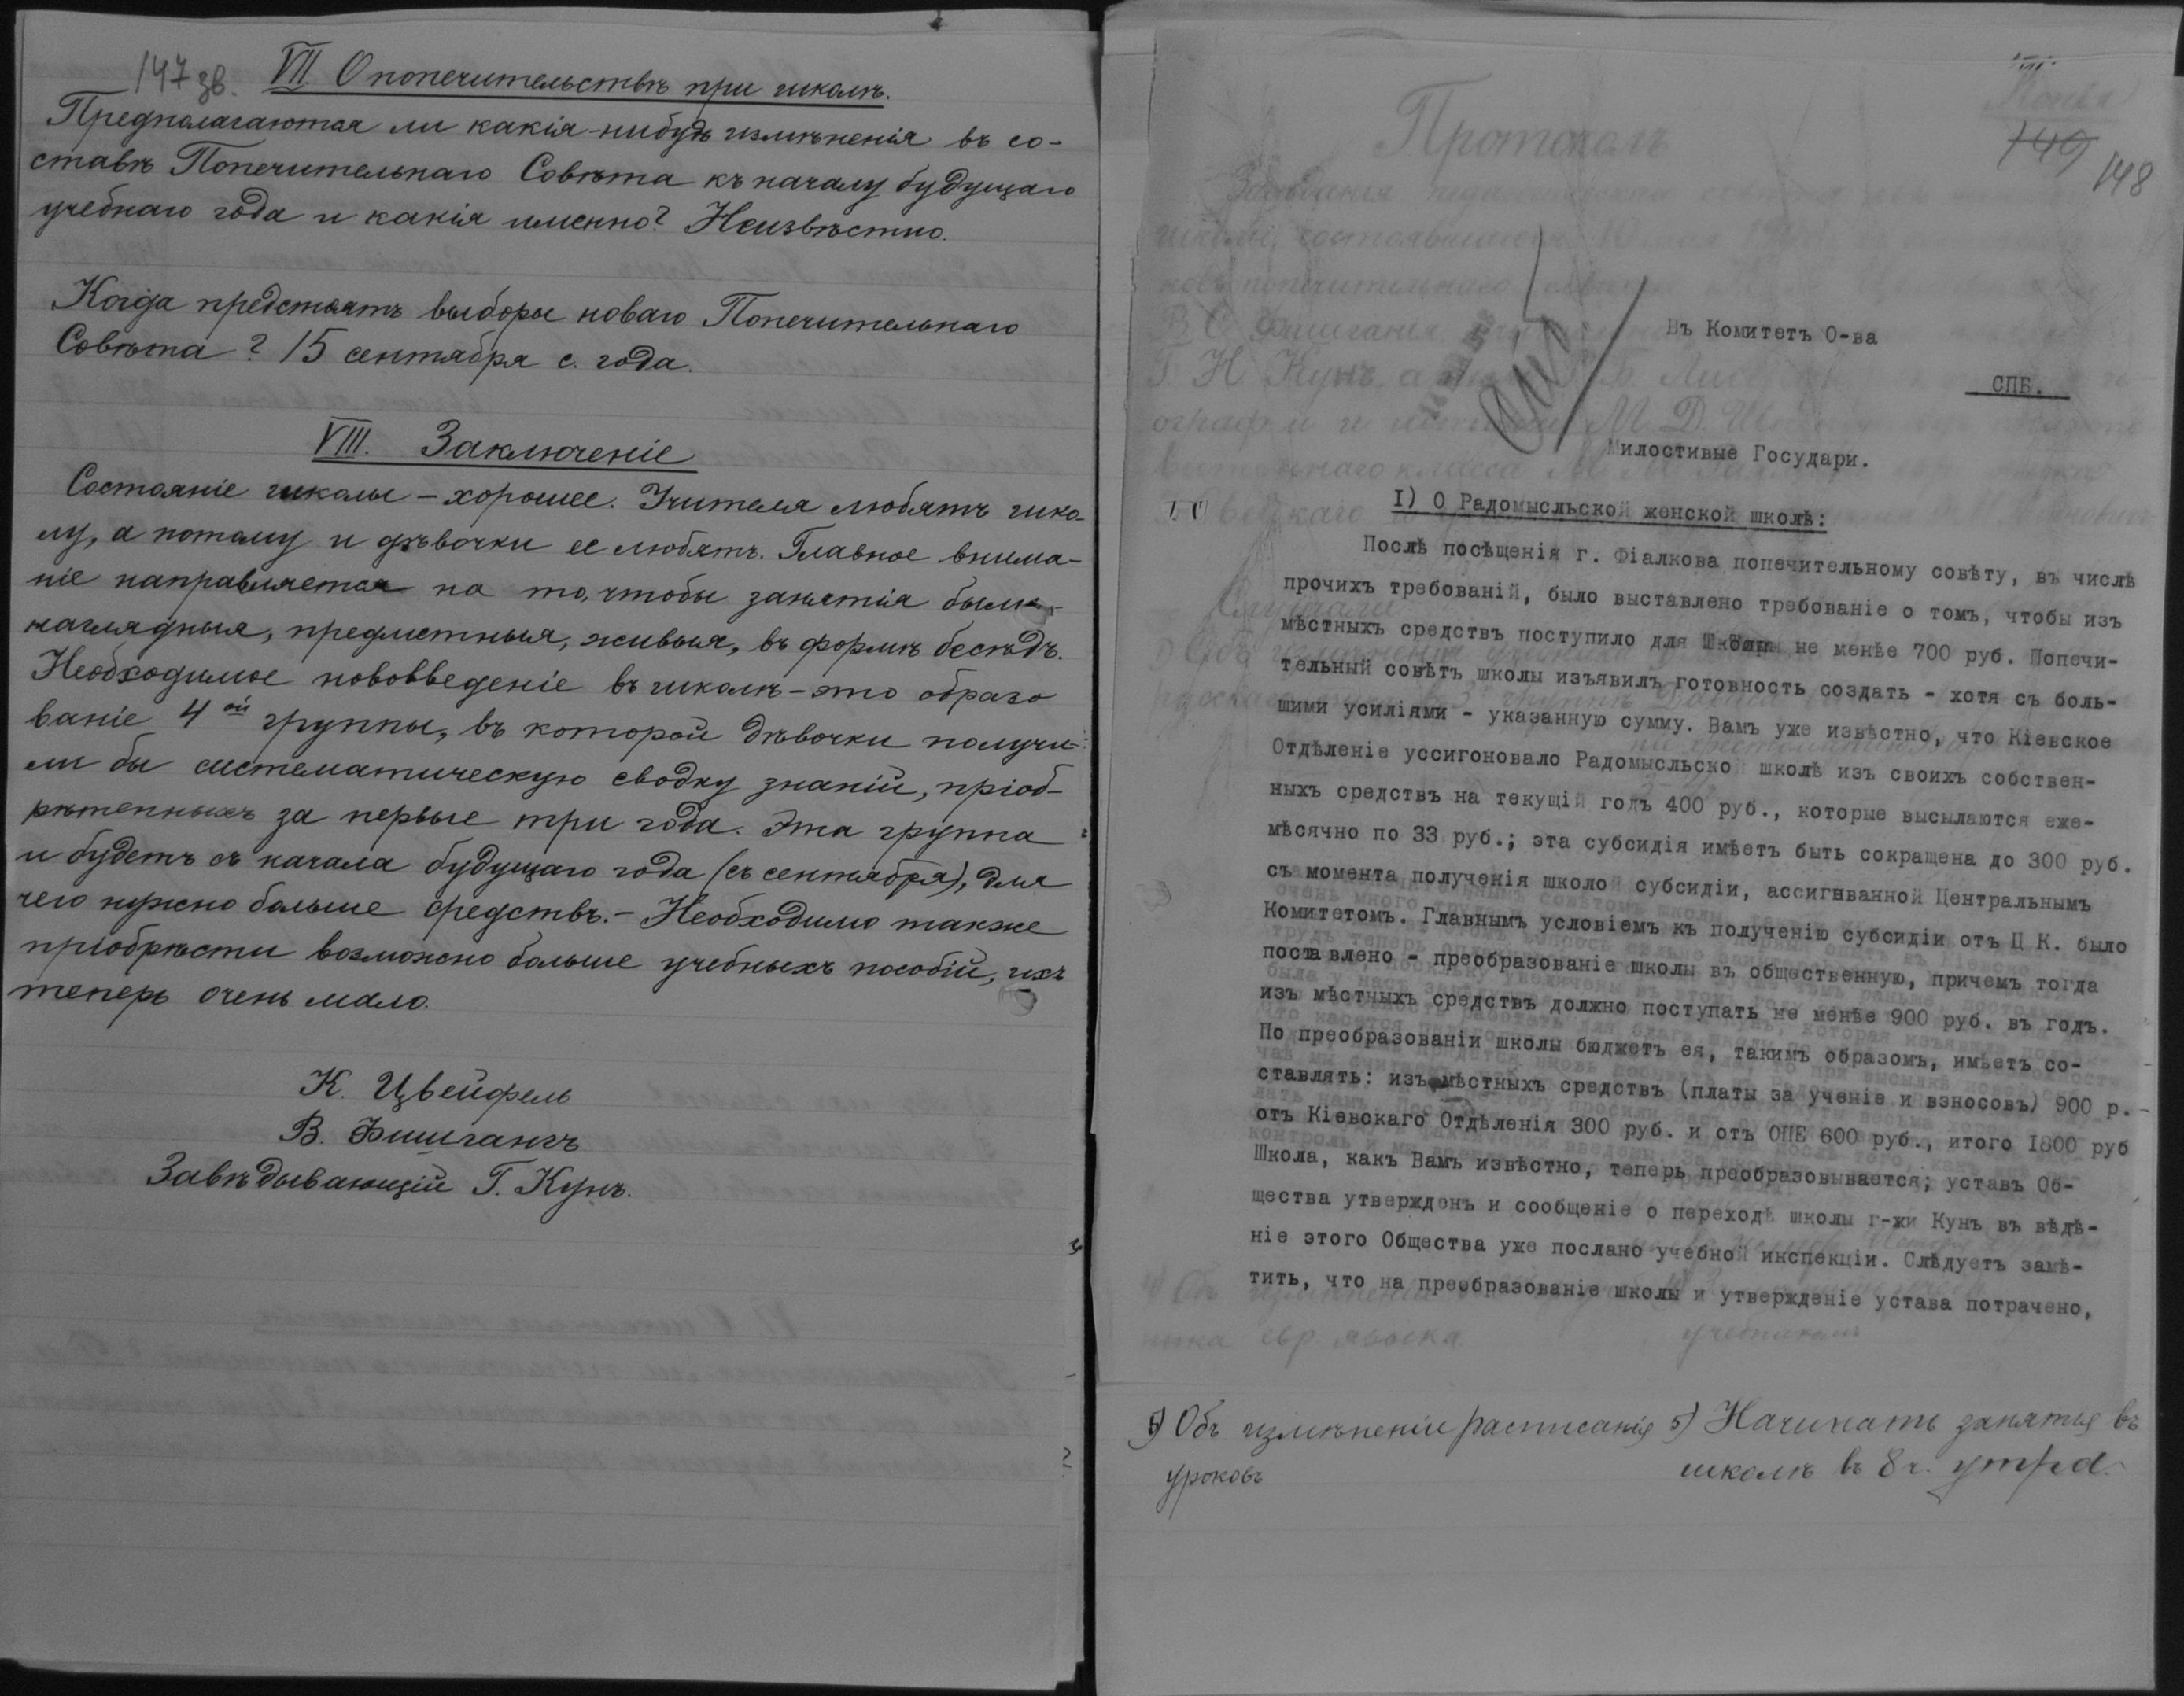 147 зв.
VII. О попечительствѣ при школѣ.
Предполагаются ли какія-нибудь измѣненія въ со-
ставѣ Попечительнаго Совѣта къ началу будущаго
учебнаго года и какія именно? Неизвѣстно.
Когда предстоятъ выборы новаго Попечительнаго
Совѣта? 15 сентября с. года.
VIII. Заключеніе
Состояніе школы – хорошее. Учителя любятъ шко-
лу, а потому и дѣвочки ее любятъ. Главное внима-
ніе направляется на то, чтобы занятія были
наглядныя, предметныя, живыя, въ формѣ бесѣдъ.
Необходимое нововведеніе въ школѣ – это образо
ваніе 4ой группы, въ которой дѣвочки получи-
ли бы систематическую сводку знаній, пріоб-
рѣтенныхъ за первые три года. Эта группа
и будетъ съ начала будущаго года (съ сентября), для
чего нужно больше средствъ. – Необходимо также
пріобрѣсти возможно больше учебныхъ пособій, ихъ
теперь очень мало.
К. Цвейфель
В. Фишгангъ
Завѣдывающій Г. Кунъ.
Копія
149 148
Протоколъ
Въ Комитетъ О-ва
СПБ.
Милостивые Государи.
I) О Радомысльской женской школѣ:
Послѣ посѣщенія г. Фіалкова попечительному совѣту, въ числѣ
прочихъ требованій, было выставлено требованіе о томъ, чтобы изъ
мѣстныхъ средствъ поступило для Школы не менѣе 700 руб. Попечи-
тельный совѣтъ школы изъявилъ готовность создать - хотя съ боль-
шими усиліями - указанную сумму. Вамъ уже извѣстно, что Кіевское
Отдѣленіе уссигоновало Радомысльской школѣ изъ своихъ собствен-
ныхъ средствъ на текущій годъ 400 руб., которые высылаются еже-
мѣсячно по 33 руб.; эта субсидія имѣетъ быть сокращена до 300 руб.
съ момента полученія школой субсидіи, ассигнванной Центральнымъ
Комитетомъ. Главнымъ условіемъ къ полученію субсидіи отъ Ц К. было
поставлено - преобразованіе школы въ общественную, причемъ тогда
изъ мѣстныхъ средствъ должно поступать не менѣе 900 руб. въ годъ.
По преобразованіи школы бюджетъ ея, такимъ образомъ, имѣетъ со-
ставлять: изъ мѣстныхъ средствъ (платы за ученіе и взносовъ) 900 р. -
отъ Кіевскаго Отдѣленія 300 руб. и отъ ОПЕ 600 руб., итого 1800 руб
Школа, какъ Вамъ извѣстно, теперь преобразовывается; уставъ Об-
щества утвержденъ и сообщеніе о переходѣ школы г-жи Кунъ въ вѣдѣ-
ніе этого Общества уже послано учебной инспекціи. Слѣдуетъ замѣ-
тить, что на преобразованіе школы и утвержденіе устава потрачено,
5) Объ измѣненіи расписанія
уроковъ
5) Начинать занятія въ
школѣ въ 8 ч. утра.